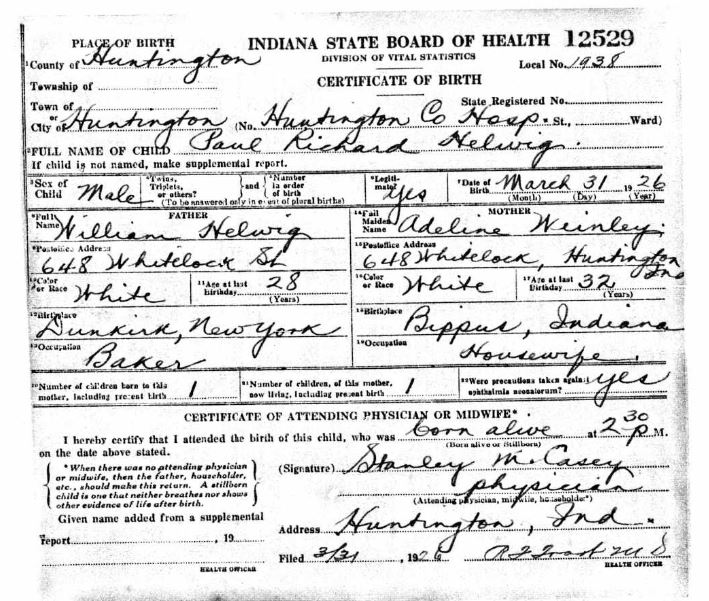 PLACE OF BIRTH INDIANA STATE BOARD OF HEALTH 12529
1County of Huntington DIVISION OF VITAL STATISTICS Local No. 1938
Township of CERTIFICATE OF BIRTH
Town of State Registered No.
or
City of Huntington (No. Huntington Co Hosp. St., Ward)
2FULL NAME OF CHILD Paul Richard Helwig.
If child is not named, make supplemental report.
3Sex of Child Male 4Twins, Triplets, or others? and 5Number in order of birth 6Legitimate? Yes 7Date of Birth March 31 1926
(To be answered only in event of plural births) (Month) (Day) (Year)
FATHER MOTHER
8Full Name William Helwig 14Full Maiden Name Adeline Weinley
9Postoffice Address 15Postoffice Address
648 Whitelock St 648 Whitelock, Huntington Ind
10Color or Race White 11Age at last Birthday 28 (Years) 16Color or Race White 17Age at last Birthday 32 (Years)
12Birthplace 18Birthplace
Dunkirk, New York Bippus, Indiana
13Occupation 19Occupation
Baker Housewife.
20Number of children born to this mother, including present birth 1 21Number of children, of this mother, now living, including present birth 1 22Were precautions taken against ophthalmia neonatorum? yes
CERTIFICATE OF ATTENDING PHYSICIAN OR MIDWIFE*
I hereby certify that I attended the birth of this child, who was born alive at 2 30 P M.
on the date above stated. (Born alive or Stillborn)
*When there was no attending physician
or midwife, then the father, householder,
etc., should make this return. A stillborn
child is one that neither breathes nor shows
other evidence of life after birth.
(Signature) Stanley M. Casey
physician
(Attending physician, midwife, householder*)
Given name added from a supplemental
report , 19 Address Huntington, Ind.
Filed 3/31, 1926 M D
HEALTH OFFICER HEALTH OFFICER